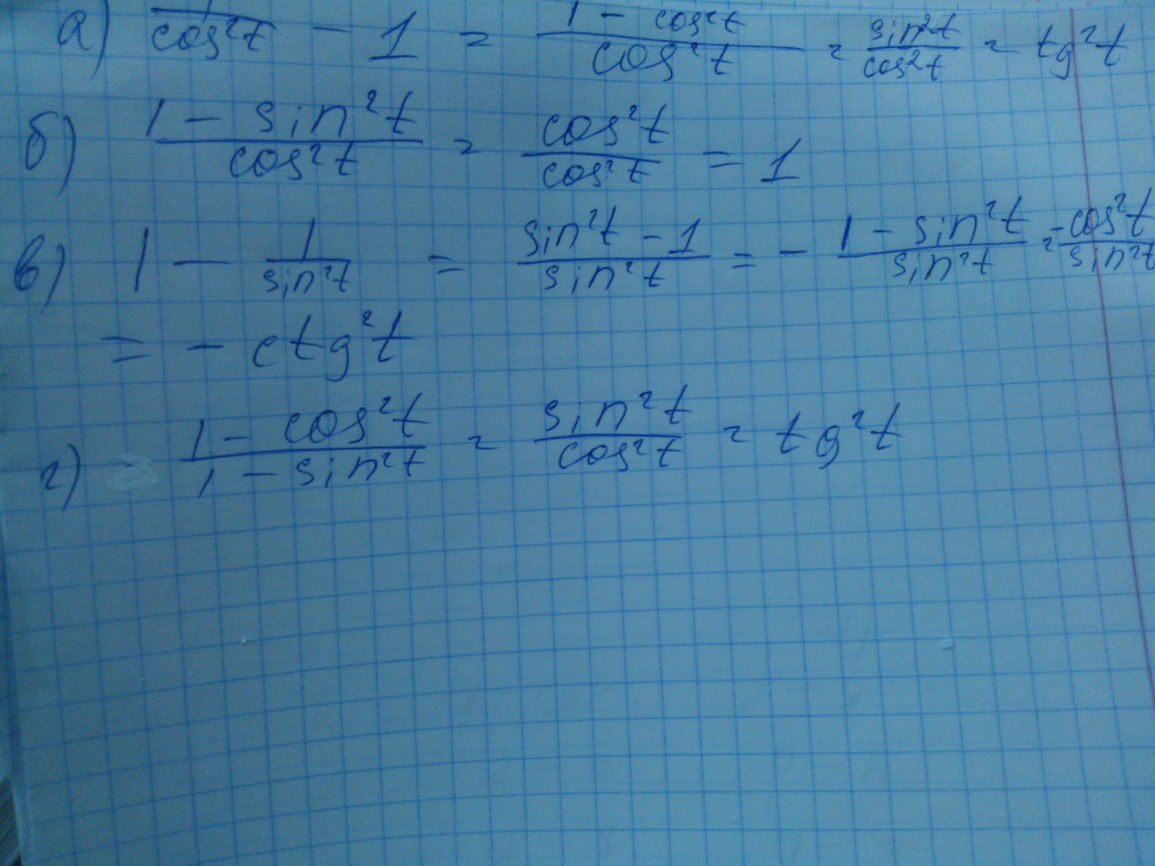 а) 1/cos²t - 1 = (1 - cos²t)/cos²t = sin²t/cos²t = tg²t
б) (1 - sin²t)/cos²t = cos²t/cos²t = 1
в) 1 - 1/sin²t = (sin²t - 1)/sin²t = - (1 - sin²t)/sin²t = -cos²t/sin²t
= - ctg²t
г) (1 - cos²t)/(1 - sin²t) = sin²t/cos²t = tg²t